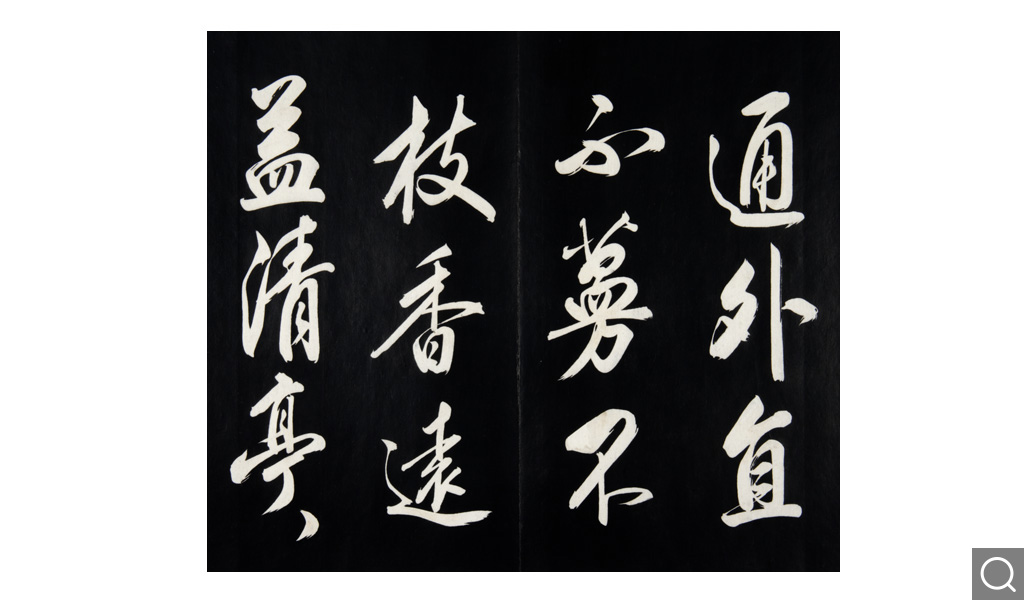 通外直
不蔓不
枝香遠
益清亭、